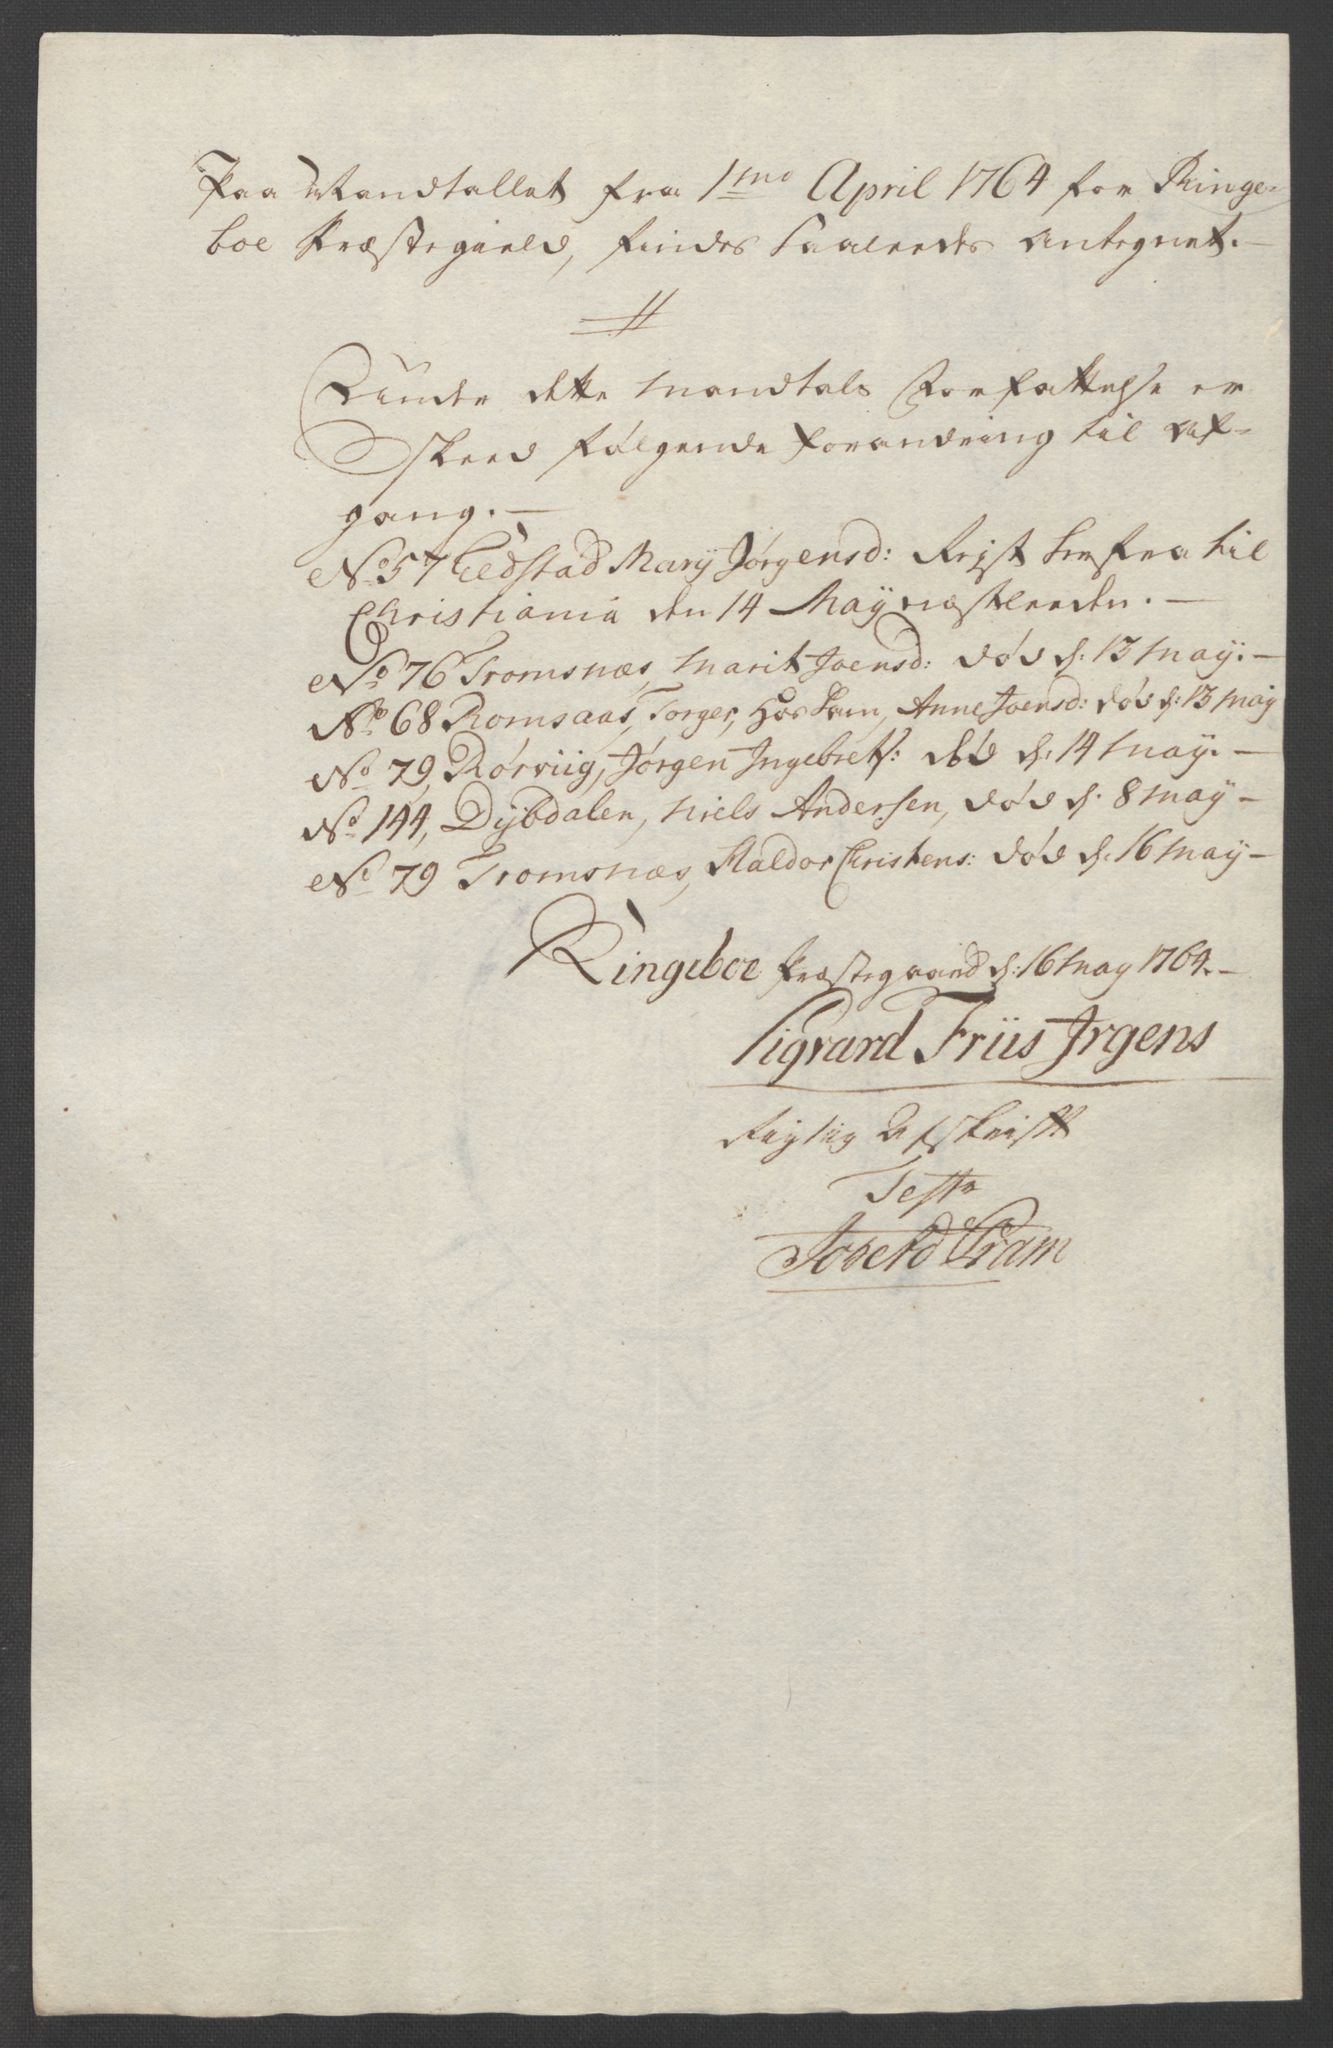 Paa Mandtallet fra 1mo April 1764 for Ringe-
boe Præstegield, findes saaleedes antegnet.—
//
Under dette Mandtals Forfattelse er
skeed følgende forandring til Af-
gang.—
No 57 Eldstad Mary Jørgensd: Rejst herfra til
Christiania den 14 May næstleeden.—
No 76 Tromsnæs, Marit Joensd: død d. 13 May.—
No 68 Romsaas, Torger, hos ham, Anne Joensd: død d: 13 May
No 79, Rørviig, Jørgen Ingebrets: død d. 14 May.—
No 144, Dybdalen, Niels Andersen, død d. 8 May—
No 79 Tromsnæs, Haldor Christens: død d. 16 May—
Ringeboe Præstegaard d: 16 May 1764.—
Sigvard Friis Irgens
Rigtig Afskrift
Test
Pram